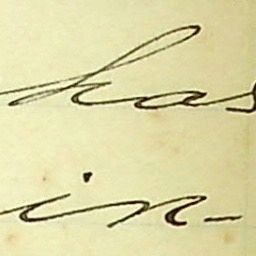 has
in-